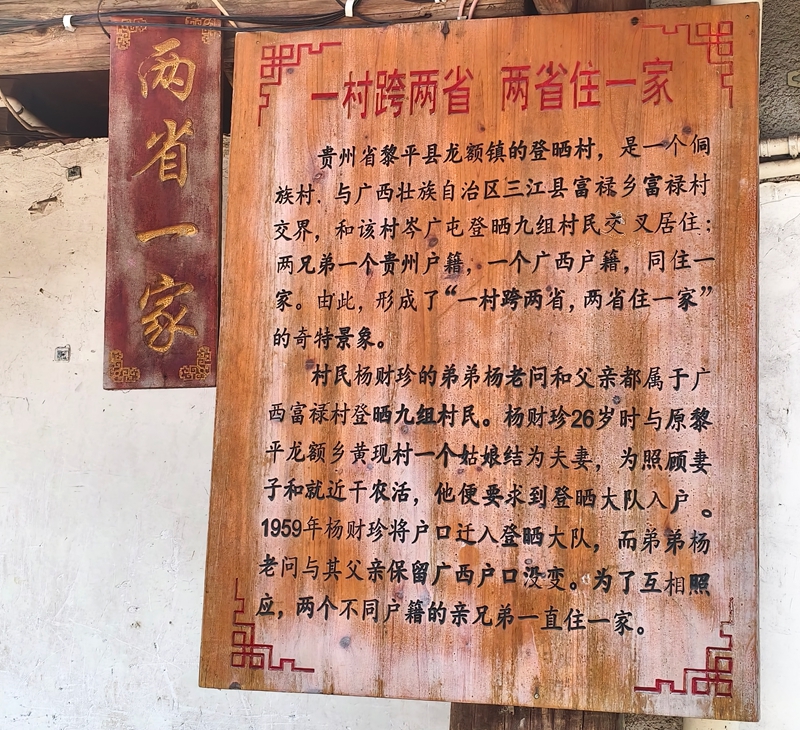 两省一家
一村跨两省 两省住一家
贵州省黎平县龙额镇的登晒村，是一个侗
族村．与广西壮族自治区三江县富禄乡富禄村
交界，和该村岑广屯登晒九组村民交叉居住；
两兄弟一个贵州户籍，一个广西户籍，同住一
家。由此，形成了“一村跨两省，两省住一家”
的奇特景象。
村民杨财珍的弟弟杨老问和父亲都属于广
西富禄村登晒九组村民。杨财珍26岁时与原黎
平龙额乡黄现村一个姑娘结为夫妻，为照顾妻
子和就近干农活，他便要求到登晒大队入户。
1959年杨财珍将户口迁入登晒大队，而弟弟杨
老问与其父亲保留广西户口没变。为了互相照
应，两个不同户籍的亲兄弟一直住一家。